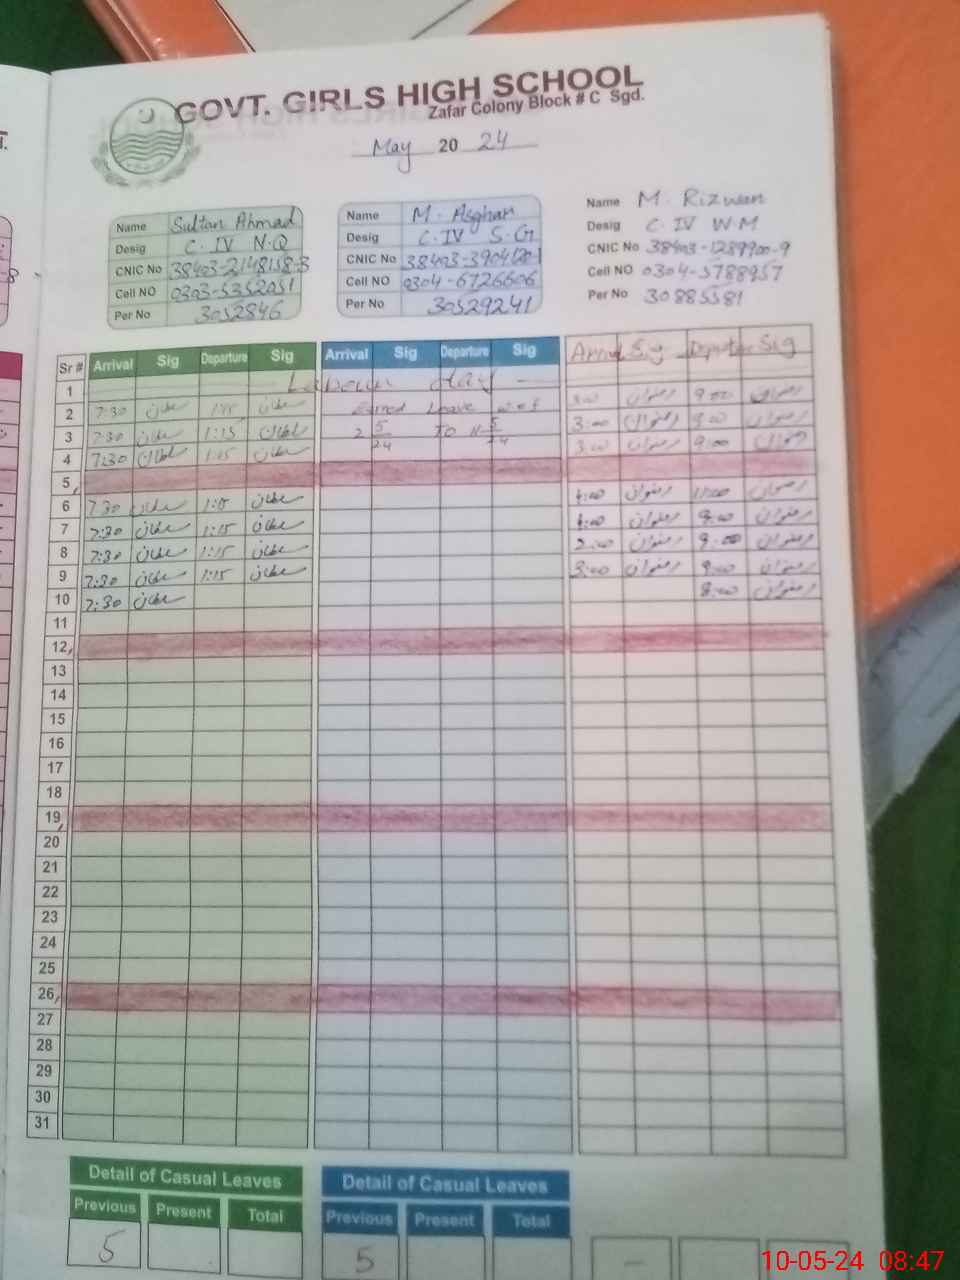 GOVT. GIRLS HIGH SCHOOL
Zafar Colony Block # C Sgd.
May 20 24
Name Sultan Ahmad
Desig C. IV N.Q
CNIC No 38403-2148158-3
Cell NO 0303-5352051
Per No 3052846
Name M. Asghar
Desig C. IV S.G
CNIC No
Cell NO 0304-6726606
Per No 30529241
Name M. Rizwan
Desig C. IV W.M
CNIC No 38403-1289900-9
Cell NO 0304-5788957
Per No 30885581
Sr # Arrival Sig Departure Sig Arrival Sig Departure Sig Arrival Sig Departure Sig
1 Labour day
2 7:30 سلطان 1:15 سلطان Earned Leave w.e.f 3:00 رضوان 9:00 رضوان
3 7:30 سلطان 1:15 سلطان 2 5/24 TO 5/24 3:00 رضوان 9:00 رضوان
4 7:30 سلطان 1:15 سلطان 3:00 رضوان 9:00 رضوان
5
6 7:30 سلطان 1:15 سلطان 4:00 رضوان رضوان
7 7:30 سلطان 1:15 سلطان رضوان 9:00 رضوان
8 7:30 سلطان 1:15 سلطان 2:00 رضوان 9:00 رضوان
9 7:30 سلطان 1:15 سلطان 3:00 رضوان 9:00 رضوان
10 7:30 سلطان 8:00 رضوان
11
12
13
14
15
16
17
18
19
20
21
22
23
24
25
26
27
28
29
30
31
Detail of Casual Leaves
Previous Present Total
5
Detail of Casual Leaves
Previous Present Total
5
10-05-24 08:47